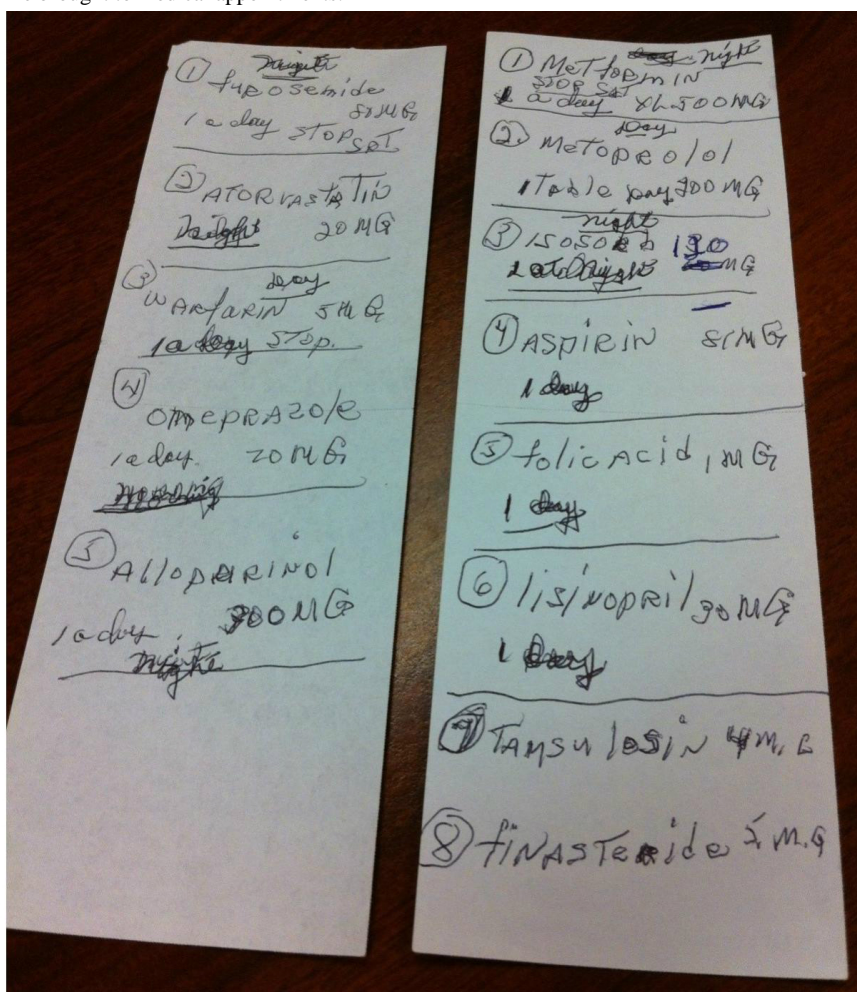 ① Night
furosemide
80 MG
1 a day STOP
SAT
② ATORVASTATIN
Night 20 MG
③ Day
WARFARIN 5 MG
1 a day STOP.
④
OMEPRAZOLE
1 a day. 20 MG
Morning
⑤
Alloparinol
300 MG
1 a day.
Night
① Night
MetforMIN
STOP SAT
1 a day 500 MG
② Day
MeTOPROlol
1 Table Day 200 MG
night
③ ISOSORB
Night MG
④ ASPIRIN 81 MG
1 day
⑤ folic Acid, MG
1 day
⑥ lisinopril 30 MG
1 Day
⑦ TAMSULOSIN M.G
⑧ fiNASTeride 5 M.G